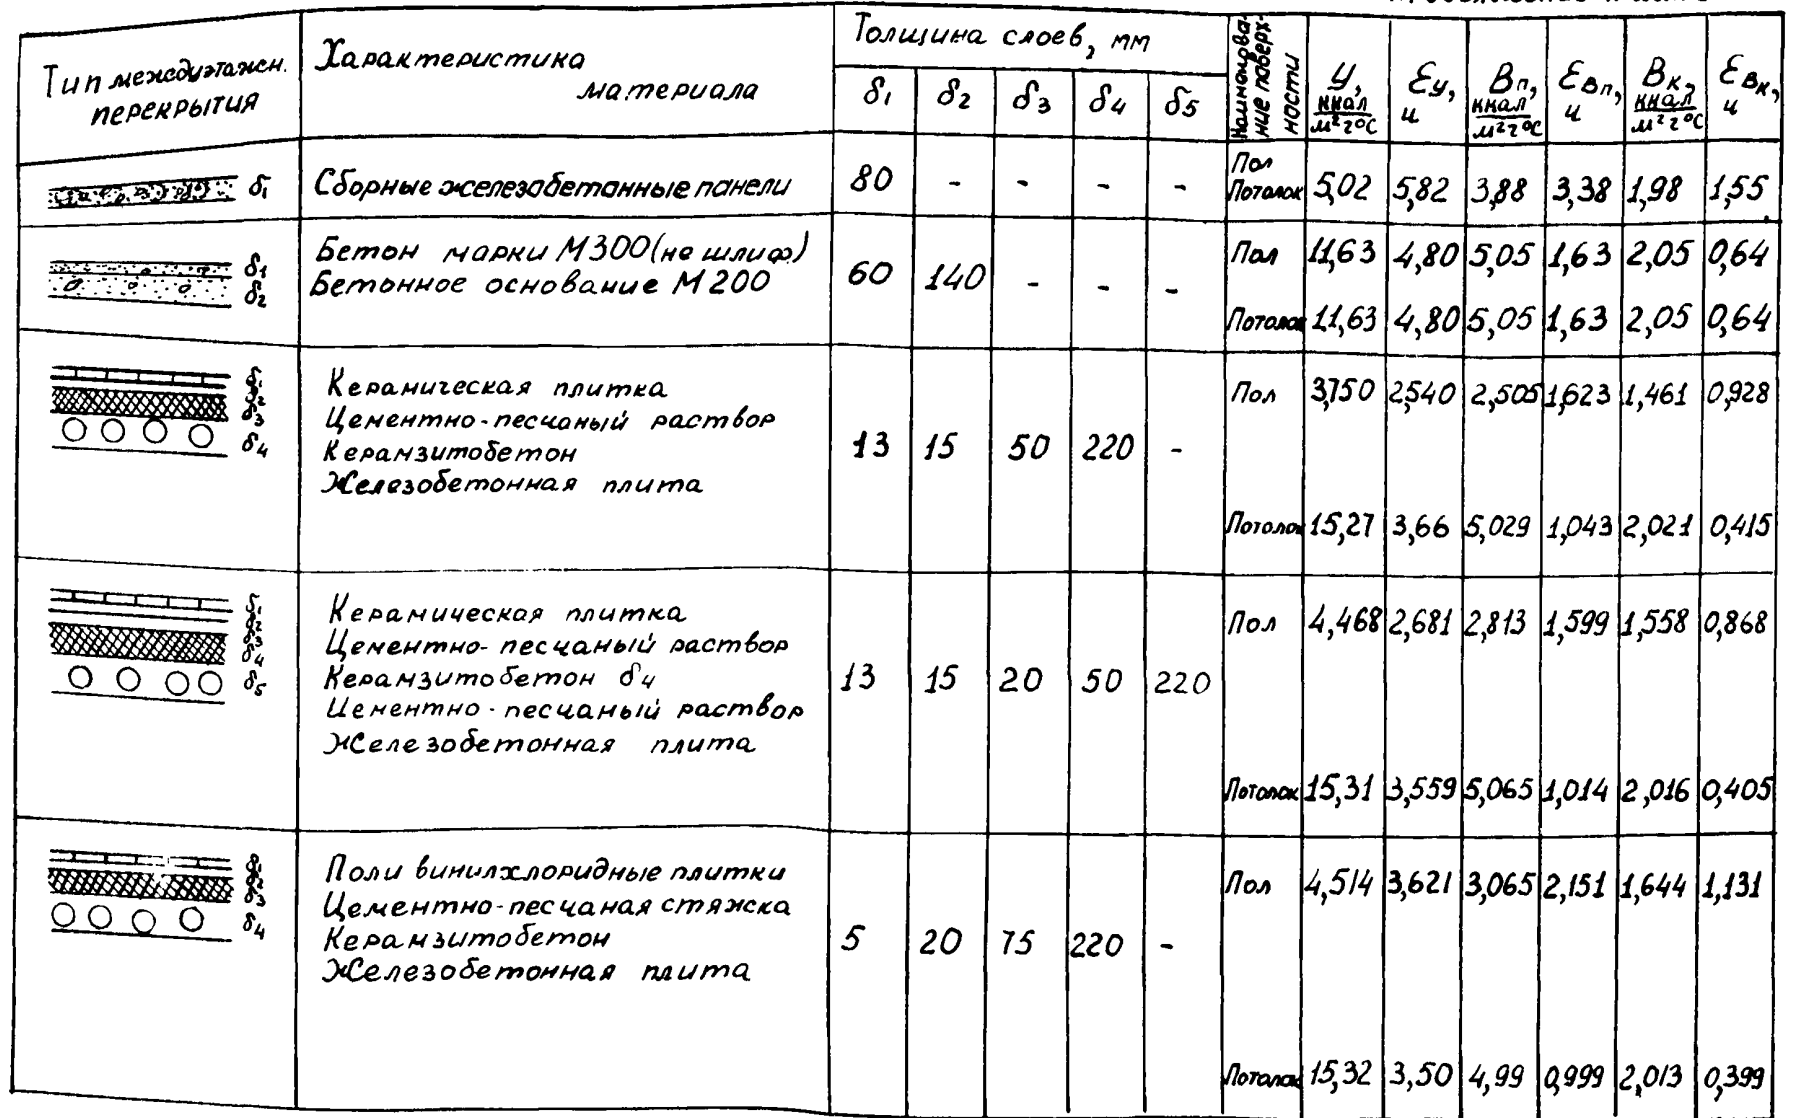 Тип междуэтажн. перекрытия | Характеристика материала | Толщина слоев, мм | Наименование поверхности | У, ккал/м²г°С | εу, ч | Вп, ккал/м²г°С | εвп, ч | Вк, ккал/м²г°С | εвк, ч
δ1 | δ2 | δ3 | δ4 | δ5
δ1 | Сборные железобетонные панели | 80 | - | - | - | - | Пол Потолок | 5,02 | 5,82 | 3,88 | 3,38 | 1,98 | 1,55
δ1 δ2 | Бетон марки М300 (не шлиф.)
Бетонное основание М200 | 60 | 140 | - | - | - | Пол | 11,63 | 4,80 | 5,05 | 1,63 | 2,05 | 0,64
Потолок | 11,63 | 4,80 | 5,05 | 1,63 | 2,05 | 0,64
δ1 δ2 δ3 δ4 | Керамическая плитка
Цементно-песчаный раствор
Керамзитобетон
Железобетонная плита | 13 | 15 | 50 | 220 | - | Пол | 3,750 | 2,540 | 2,505 | 1,623 | 1,461 | 0,928
Потолок | 15,27 | 3,66 | 5,029 | 1,043 | 2,021 | 0,415
δ1 δ2 δ3 δ4 δ5 | Керамическая плитка
Цементно-песчаный раствор
Керамзитобетон δ4
Цементно-песчаный раствор
Железобетонная плита | 13 | 15 | 20 | 50 | 220 | Пол | 4,468 | 2,681 | 2,813 | 1,599 | 1,558 | 0,868
Потолок | 15,31 | 3,559 | 5,065 | 1,014 | 2,016 | 0,405
δ1 δ2 δ3 δ4 | Поливинилхлоридные плитки
Цементно-песчаная стяжка
Керамзитобетон
Железобетонная плита | 5 | 20 | 75 | 220 | - | Пол | 4,514 | 3,621 | 3,065 | 2,151 | 1,644 | 1,131
Потолок | 15,32 | 3,50 | 4,99 | 0,999 | 2,013 | 0,399